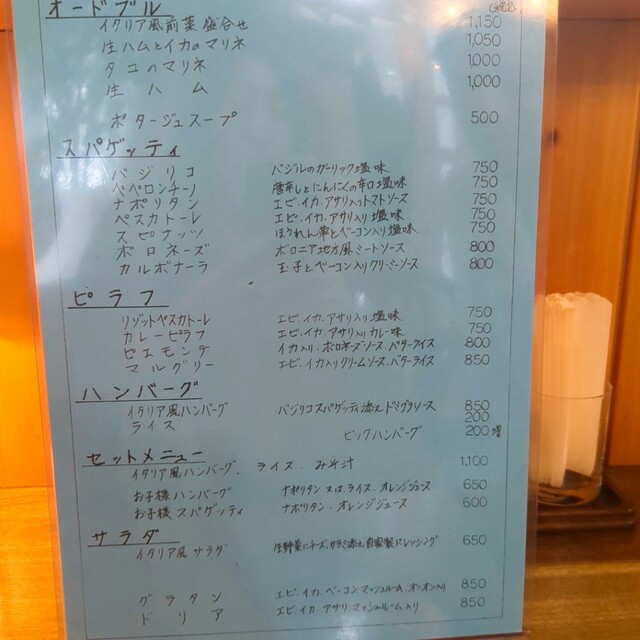 オードブル (税込)
イタリア風前菜盛合せ 1,150
生ハムとイカのマリネ 1,050
タコのマリネ 1,000
生ハム 1,000
ポタージュスープ 500
スパゲッティ
バジリコ バジルのガーリック塩味 750
ペペロンチーノ 唐辛しとにんにくの辛口塩味 750
ナポリタン エビ.イカ.アサリ入りトマトソース 750
ペスカトーレ エビ.イカ.アサリ入り塩味 750
スピナッツ ほうれん草とベーコン入り塩味 750
ボロネーズ ボロニア地方風ミートソース 800
カルボナーラ 玉子とベーコン入りクリームソース 800
ピラフ
リゾットペスカトーレ エビ.イカ.アサリ入り塩味 750
カレーピラフ エビ.イカ.アサリ入りカレー味 750
ピエモンテ イカ入り.ボロネーズソース.バターライス 800
マルグリー エビ.イカ入りクリームソース.バターライス 850
ハンバーグ
イタリア風ハンバーグ バジリコスパゲッティ添え ドミグラソース 850
ライス 200
ビックハンバーグ 200増
セットメニュー
イタリア風ハンバーグ. ライス. みそ汁 1,100
お子様ハンバーグ ナポリタン又は.ライス.オレンジジュース 650
お子様スパゲッティ ナポリタン.オレンジジュース 600
サラダ
イタリア風サラダ 生野菜にチーズ.サラミ添え自家製ドレッシング 650
グラタン エビ.イカ.ベーコン.マッシュルーム.オニオン入り 850
ドリア エビ.イカ.アサリ.マッシュルーム入り 850